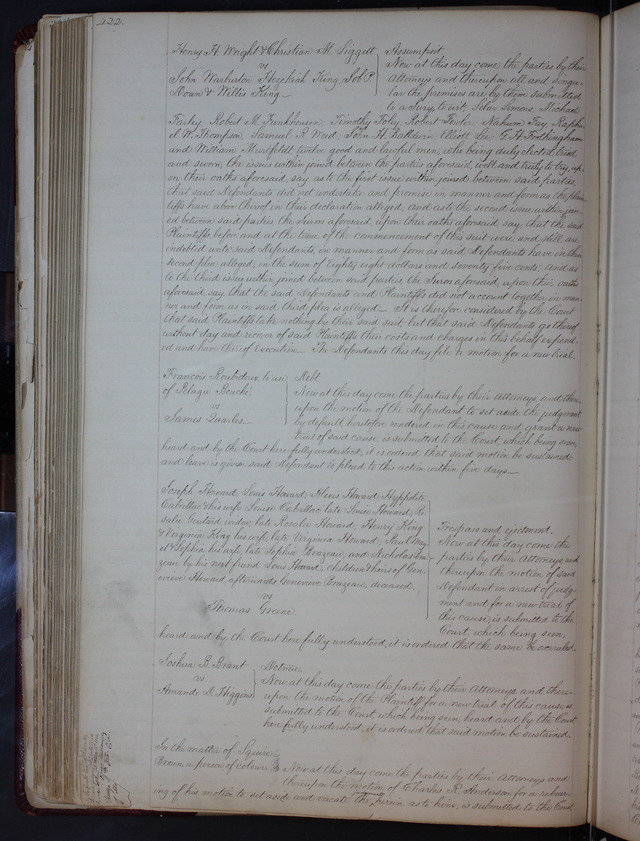 422
Henry H. Wright & Christian M. Liggett
vs
John Warburton Hezekiah King, Job P
Doan & Willis King
Assumpsit
Now at this day come the parties by their
Attorneys and thereupon all and singu-
lar the premises are by them submitted
to a Jury, to wit, Silar Simons, Michael
Farley, Robert M. Funkhouser, Timothy Foley, Robert Forder, Nahum Fay, Raph-
el W. Thompson, Samuel R. Weed, John H. Baldwin, Elliott Lee, F. H. Frothingham
and William Murpfeldt, twelve good and lawful men, who being duly elected, tried
and sworn the issues within joined between the parties aforesaid, well and truly to try, up-
on their oaths aforesaid, say as to the first issue within joined between said parties
that said Defendants did not undertake and promise in manner and form as the plain-
tiffs have above thereof in their declaration alleged; and as to the second issue within join
ed between said parties the Jurors aforesaid, upon their oaths aforesaid say, that the said
Plaintiffs before and at the time of the commencement of this suit were and still are
indebted unto said Defendants, in manner and form as said Defendants have in their
second plea alleged, in the sum of Eighty eight dollars and seventy five cents; And as
to the third issue within joined between said parties, the Jurors aforesaid, upon their oaths
aforesaid, say, that the said Defendants and Plaintiffs did not account together in man-
ner and form as in said third plea is alleged. It is therefor considered by the Court
that said Plaintiffs take nothing by their said suit, but that said Defendants go thereof
without day and recover of said Plaintiffs their costs and charges in this behalf expend-
ed and have thereof execution. The Defendants this day file a motion for a new trial.
Francois Roubidoux to use
of Pelagie Bouchi
vs
James Quarles
Debt
Now at this day come the parties by their Attorneys, and there
upon the motion of the Defendant to set aside the judgment
by default heretofore rendered in this cause, and grant a new
trial of said cause, is submitted to the Court, which being seen,
heard and by the Court here fully understood, it is ordered that said motion be sustained
and leave is given said Defendant to plead to this action within five days
Joseph Howard, Louis Howard, Alexis Howard, Hyppolite
Cabrillac & his wife Louise Cabrillac, late Louise Howard, Ro-
salie Guitard widow, late Rosalie Howard, Henry King
& Virginia King his wife, late Virginia Howard, Paul
& Sophia his wife, late Sophia Brazeau, and Nicholas Bra-
zeau by his next friend Louis Howard, children & heirs of Gen-
evieve Howard, afterwards Genevieve Brazeau, deceased.
vs
Thomas Greene
Trespass and ejectment.
Now at this day come the
parties by their Attorneys, and
thereupon the motion of said
Defendant in arrest of judg-
ment and for a new trial of
this cause, is submitted to the
Court, which being seen,
heard and by the Court here fully understood, it is ordered that the same be overruled.
Joshua B. Brant
vs
Amanda N. Higgins
Detinue
Now at this day come the parties by their Attorneys, and there-
upon the motion of the Plaintiff for a new trial of this cause is
submitted to the Court, which being seen, heard and by the Court
here fully understood, it is ordered that said motion be sustained.
In the matter of Squire
Brown a person of colour
Now at this day come the parties by their Attorneys and
thereupon the motion of Charles R. Anderson for a rehear-
ing of his motion to set aside and vacate the as to him, is submitted to the Court